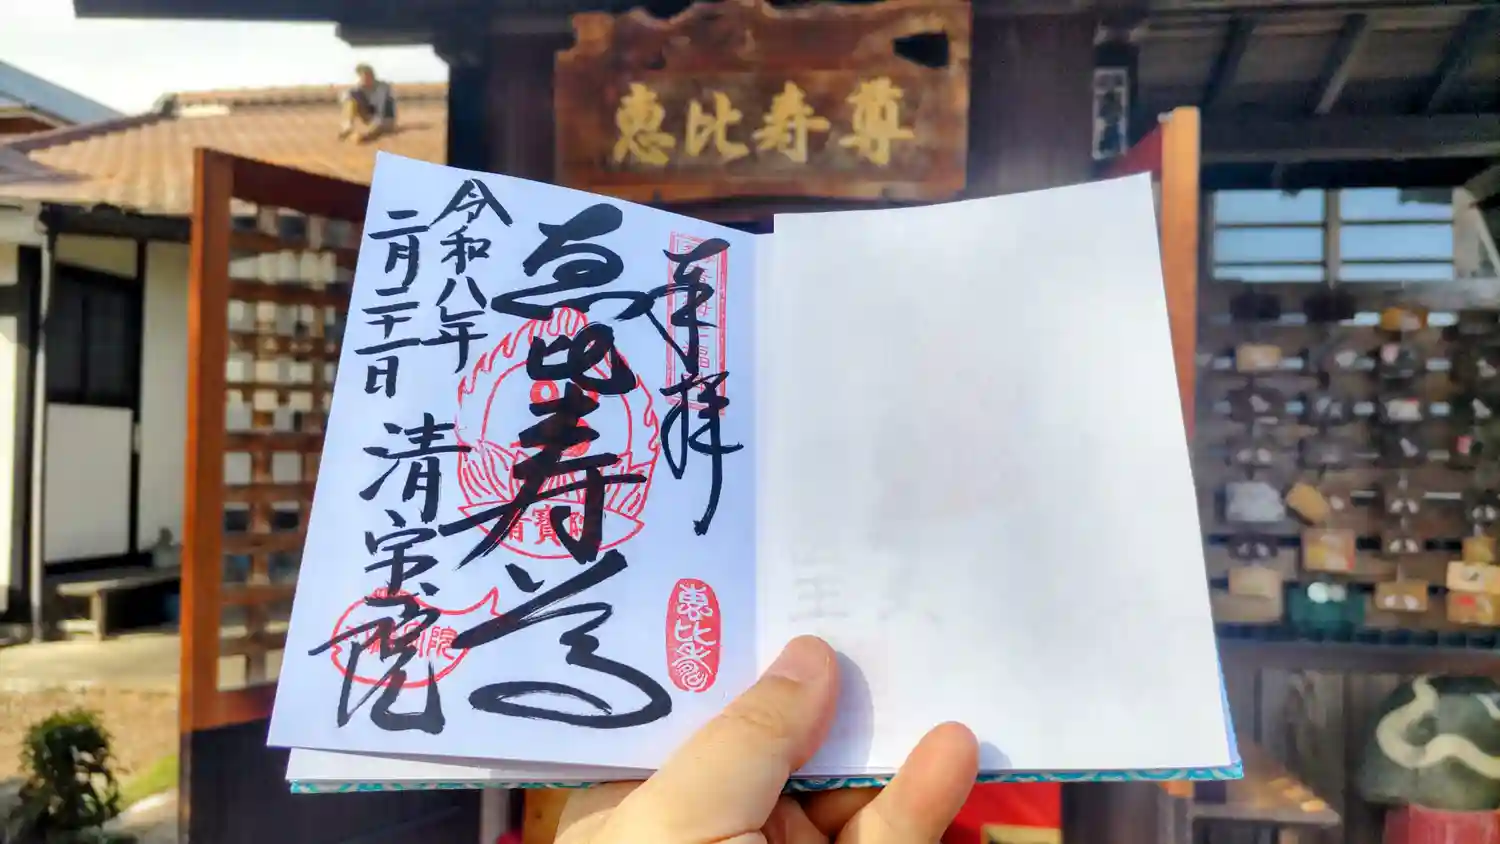 恵比寿尊
奉拝
恵比寿尊
令和八年
二月二十二日
清宝院
清寶院
恵比寿